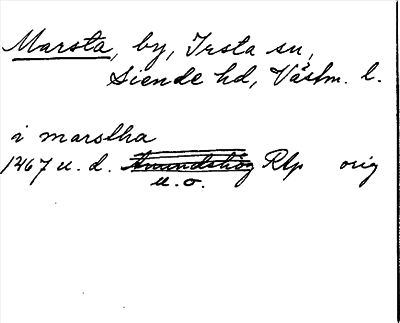 Marsta, by, Irsta sn,
Siende hd, Västm. l.
i marstha
1467 u. d. Amundshög Rtp orig
u. o.